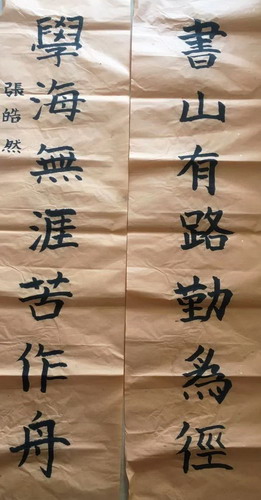 書山有路勤為徑
學海無涯苦作舟
張皓然